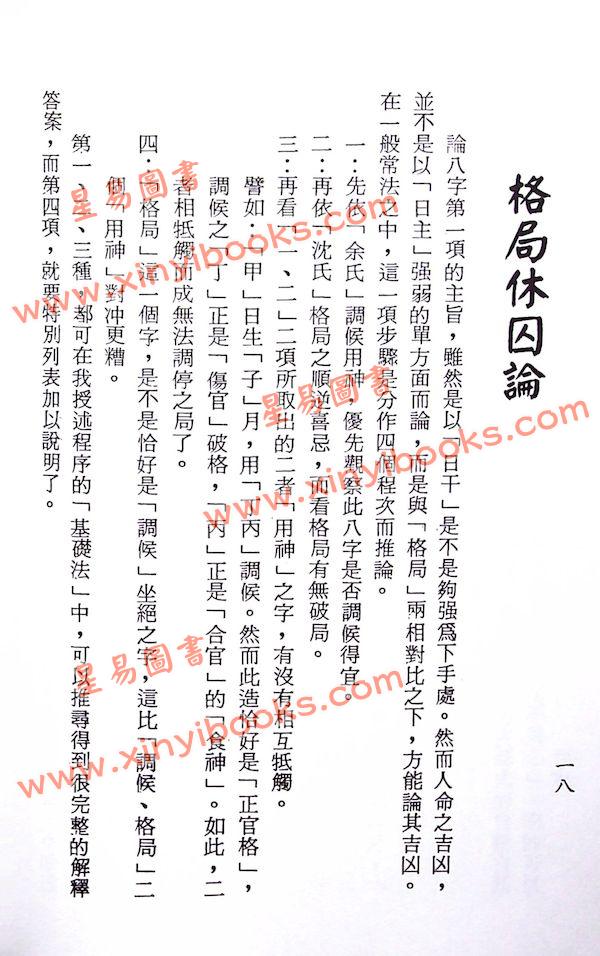 格局休囚論
一八
論八字第一項的主旨，雖然是以「日干」是不是夠强爲下手處。然而人命之吉凶，
並不是以「日主」强弱的單方面而論，而是與「格局」兩相對比之下，方能論其吉凶。
在一般常法之中，這一項步驟是分作四個程次而推論。
一：先依「余氏」調候用神，優先觀察此八字是否調候得宜
二：再依「沈氏」格局之順逆喜忌，而看格局有無破局。
三：再看「一、二」二項所取出的二者「用神」之字，有沒有相互牴觸。
譬如：「甲」日生「子」月，用「丁丙」調候。然而此造恰好是「正官格」，
調候之「丁」正是「傷官」破格，「丙」正是「合官」的「食神」。如此，二
者相牴觸而成無法調停之局了。
四：「格局」這一個字，是不是恰好是「調候」坐絕之字，這比「調候、格局」二
個「用神」對冲更糟。
第一、二、三種，都可在我授述程序的「基礎法」中，可以推尋得到很完整的解釋
答案，而第四項，就要特別列表加以說明了。
星易圖書
www.xinyibooks.com
星易圖書
www.xinyibooks.com
星易圖書
www.xinyibooks.com